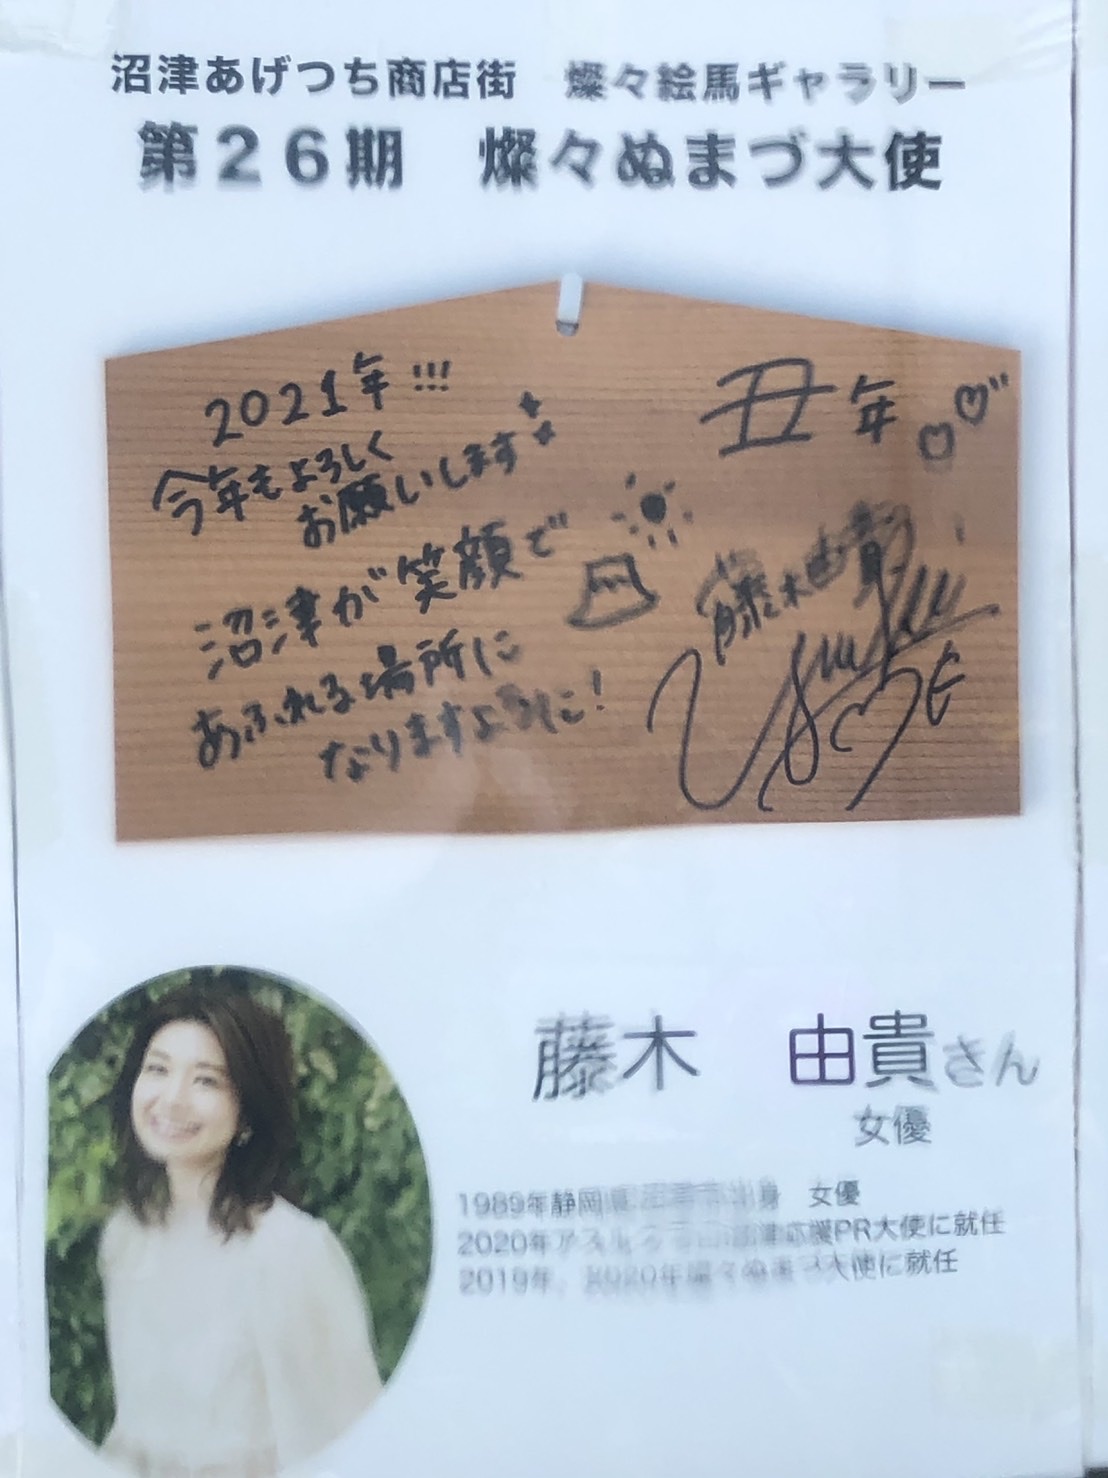 沼津あげつち商店街　燦々絵馬ギャラリー
第２６期　燦々ぬまづ大使
2021年!!!
今年もよろしく
お願いします
沼津が笑顔で
あふれる場所に
なりますように!
丑年
藤木由貴
藤木　由貴さん
女優
1989年静岡県沼津市出身　女優
2020年アスルクラロ沼津応援PR大使に就任
2019年、2020年燦々ぬまづ大使に就任